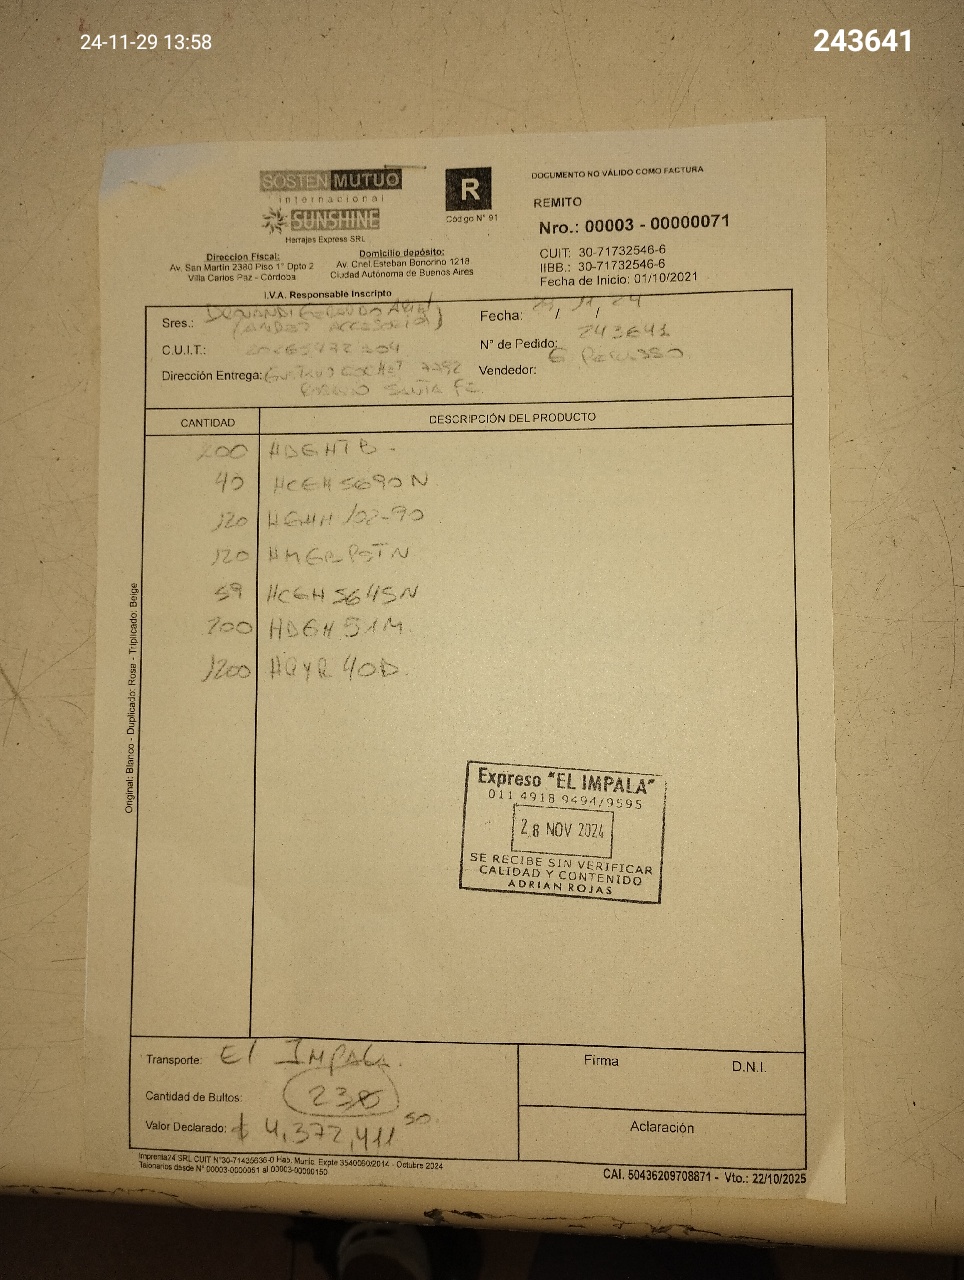 24-11-29 13:58
243641
SOSTEN MUTUO
internacional
SUNSHINE
Herrajes Express SRL
R
Código N° 91
DOCUMENTO NO VÁLIDO COMO FACTURA
REMITO
Nro.: 00003 - 00000071
CUIT: 30-71732546-6
IIBB.: 30-71732546-6
Fecha de Inicio: 01/10/2021
Direccion Fiscal:
Av. San Martin 2380 Piso 1° Dpto 2
Villa Carlos Paz - Córdoba
Domicilio depósito:
Av. Cnel.Esteban Bonorino 1218
Ciudad Autónoma de Buenos Aires
I.V.A. Responsable Inscripto
Sres.:
Fecha: / /
C.U.I.T.:
N° de Pedido: 243641
Dirección Entrega:
Vendedor:
SANTA FE
CANTIDAD DESCRIPCIÓN DEL PRODUCTO
200 HDGHTB
40 HCGH5690N
120 HGHH/02-90
120
59 HCGH5645N
200 HDGH51M
1200 HQYR40D
Original: Blanco - Duplicado: Rosa - Triplicado: Beige
Expreso "EL IMPALA"
011 4918 9494/9595
28 NOV 2024
SE RECIBE SIN VERIFICAR
CALIDAD Y CONTENIDO
ADRIAN ROJAS
Transporte: El IMPALA.
Cantidad de Bultos:
Valor Declarado: $ 4,372,411 50
Firma D.N.I.
Aclaración
Imprenta24 SRL CUIT N°30-71435636-0 Hab. Munic. Expte 3540060/2014 - Octubre 2024
Talonarios desde N° 00003-00000051 al 00003-00000150
CAI. 50436209708871 - Vto.: 22/10/2025